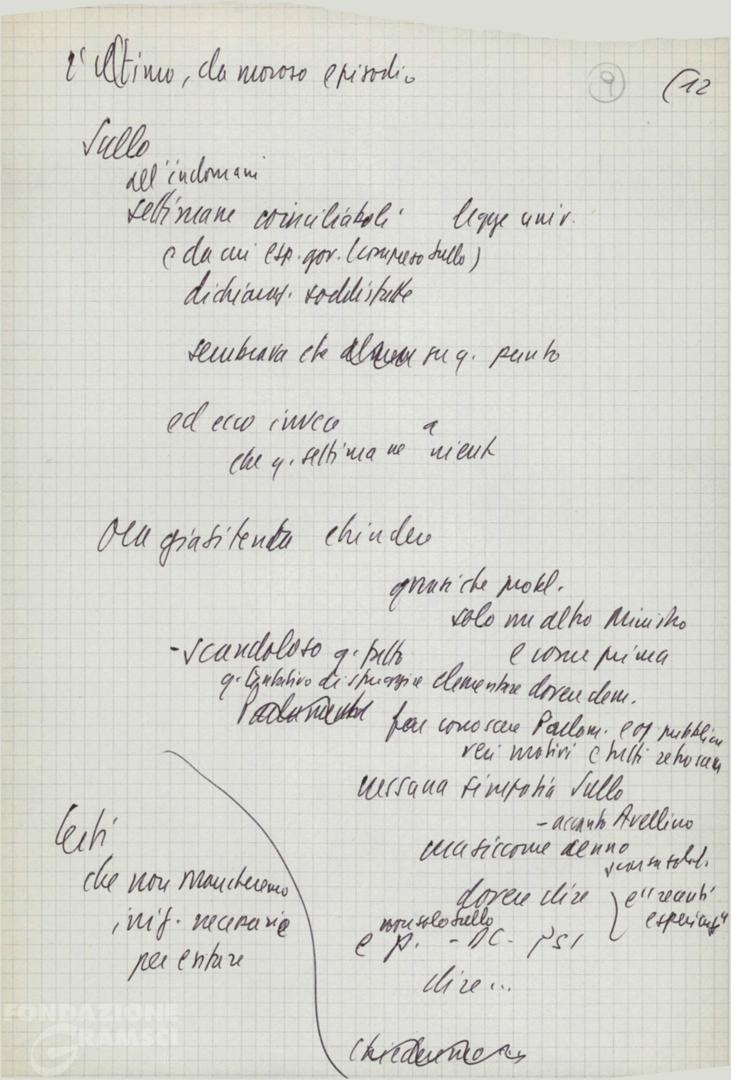 l'ultimo, clamoroso episodio
9
(12
Sullo
all'indomani
settimane conciliaboli legge univ.
e da cui esp. gov. (compreso Sullo)
dichiaraz. soddisfatte
sembrava che su q. punto
ed ecco invece a
che q. settimane niente
Ora già si tenta chiudere
quasi che probl.
solo un altro Ministro
e come prima
- scandaloso q. fatto
q. tentativo di sfuggire elementare dovere dem.
far conoscere Parlam. e op. pubblica
veri motivi e tutti retroscena
nessuna simpatia Sullo
- accanto Avellino
ma siccome
dovere dire e "recenti
esperienze"
non solo Sullo
e p. - DC - PSI
dire...
Certi
che non mancheremo
iniz. necessarie
per entrare
FONDAZIONE
GRAMSCI